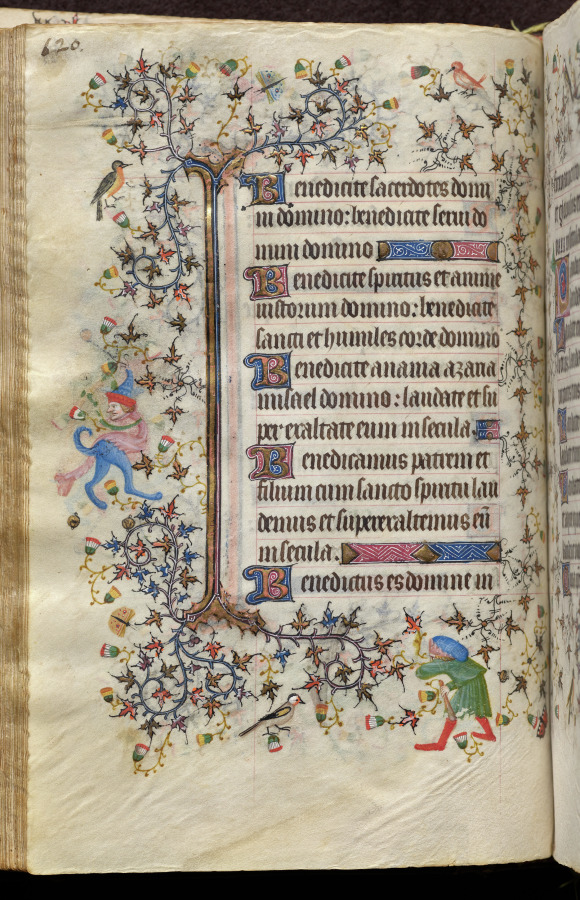 620.
Benedicite sacerdotes domi
ni domino: benedicite serui do
mini domino
Benedicite spiritus et anime
iustorum domino: benedicite
sancti et humiles corde domino
Benedicite anania azaria
misael domino: laudate et su
per exaltate eum in secula.
Benedicamus patrem et
filium cum sancto spiritu lau
demus et superexaltemus eū
in secula.
Benedictus es domine in